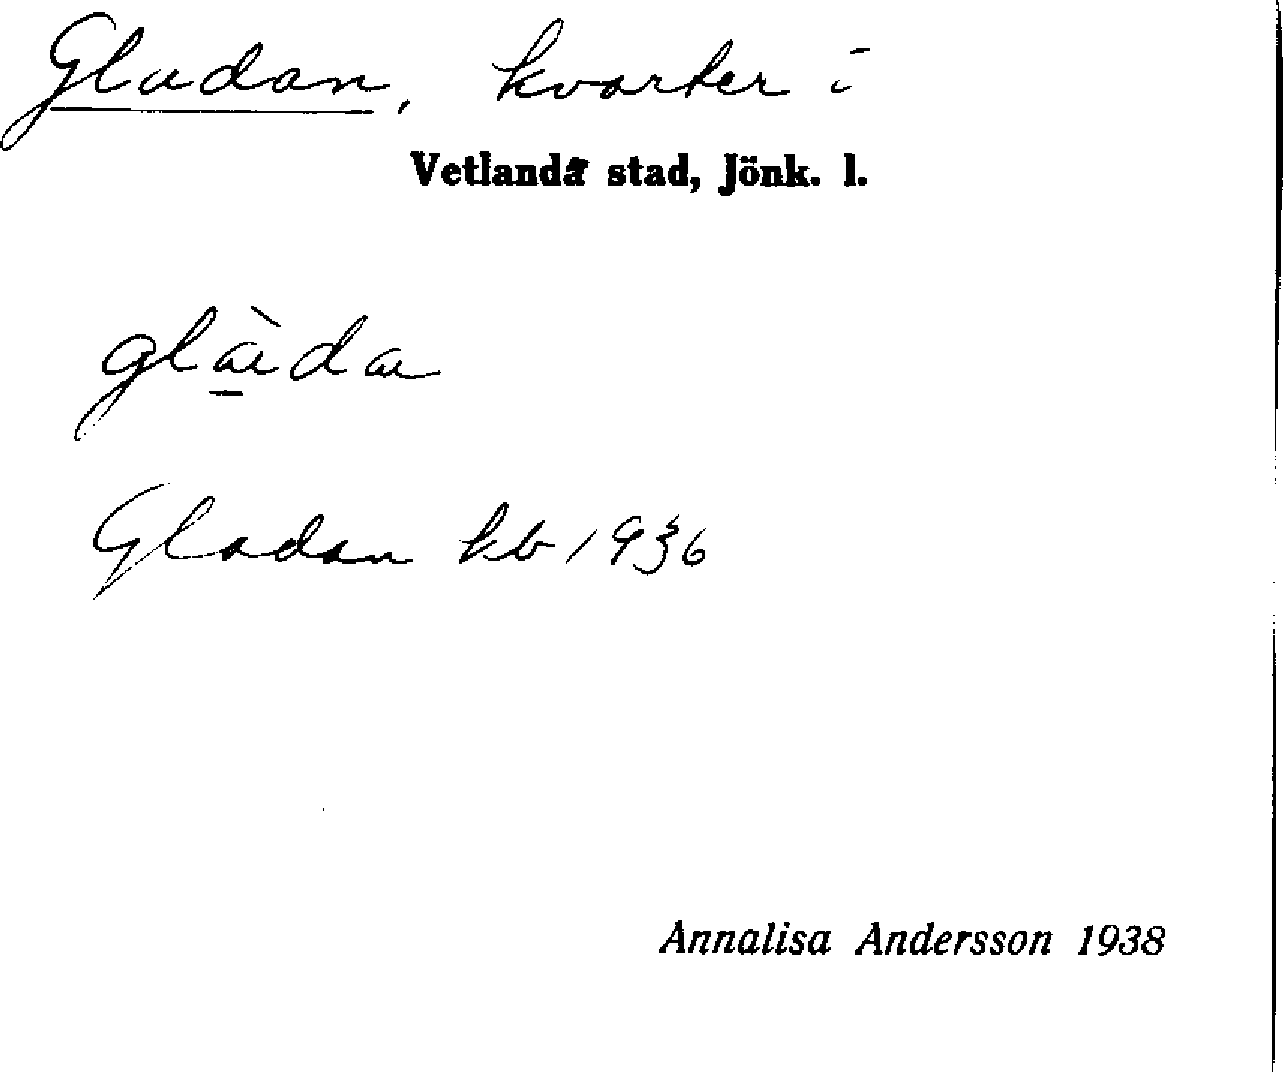 Gladan, kvarter i
Vetlanda stad, Jönk. l.
glàda
Gladan kb 1936
Annalisa Andersson 1938